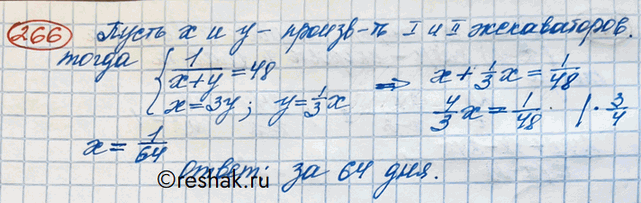 266 Пусть x и y - произв-ть I и II экскаваторов.
тогда { 1/(x+y) = 48
x = 3y; y = 1/3 x
=> x + 1/3 x = 1/48
4/3 x = 1/48 | · 3/4
x = 1/64
Ответ: за 64 дня.
©reshak.ru